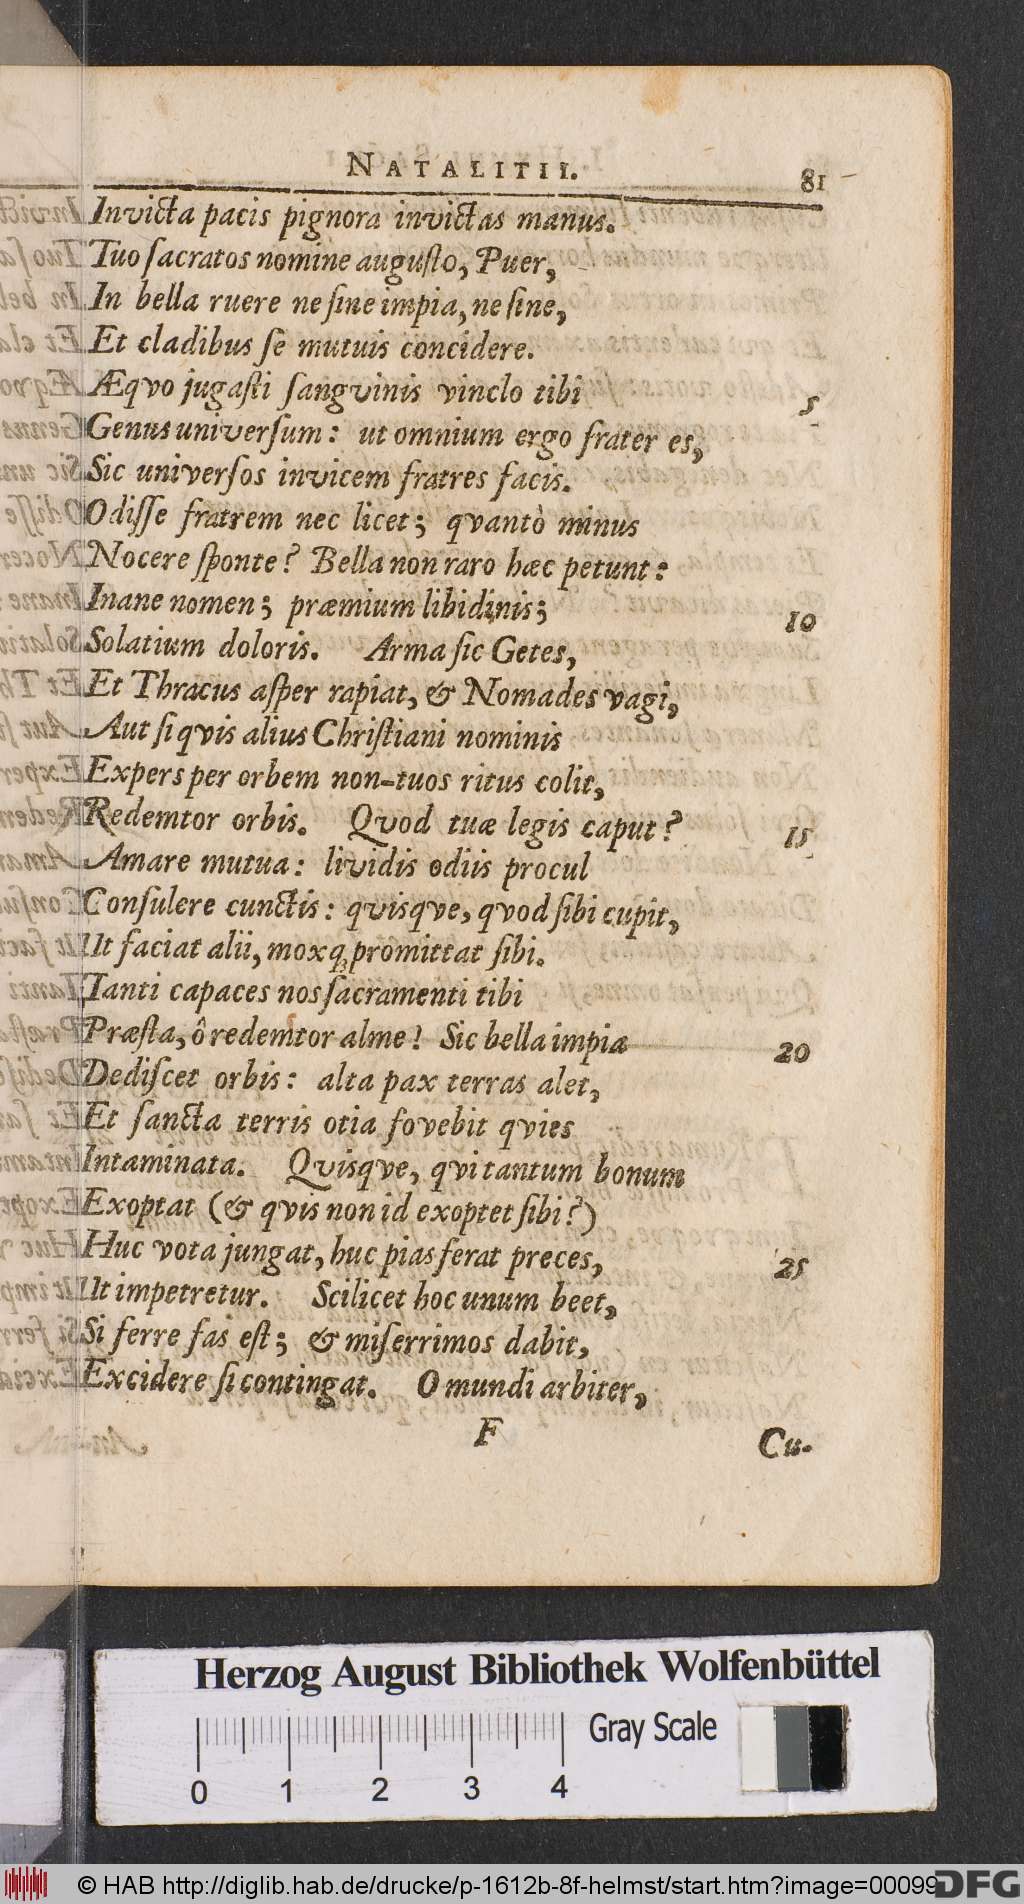 NATALITII. 81
Invicta pacis pignora invictas manus.
Tuo ſacratos nomine auguſto, Puer,
In bella ruere ne ſine impia, ne ſine,
Et cladibus ſe mutuis concidere.
Æqvo jugaſti ſangvinis vinclo tibi 5
Genus univerſum: ut omnium ergo frater es,
Sic univerſos invicem fratres facis.
Odiſſe fratrem nec licet; qvantò minus
Nocere ſponte? Bella non raro hæc petunt:
Inane nomen; præmium libidinis; 10
Solatium doloris. Arma ſic Getes,
Et Thracus aſper rapiat, & Nomades vagi,
Aut ſi qvis alius Chriſtiani nominis
Expers per orbem non-tuos ritus colit,
Redemtor orbis. Qvod tuæ legis caput? 15
Amare mutua: lividis odiis procul
Conſulere cunctis: qvisqve, qvod ſibi cupit,
Ut faciat alii, moxq́; promittat ſibi.
Tanti capaces nos ſacramenti tibi
Præſta, ô redemtor alme! Sic bella impia 20
Dediſcet orbis: alta pax terras alet,
Et ſancta terris otia fovebit qvies
Intaminata. Qvisqve, qvi tantum bonum
Exoptat (& qvis non id exoptet ſibi?)
Huc vota jungat, huc pias ferat preces, 25
Ut impetretur. Scilicet hoc unum beet,
Si ferre fas eſt; & miſerrimos dabit,
Excidere ſi contingat. O mundi arbiter,
F Cu-
Herzog August Bibliothek Wolfenbüttel
Gray Scale
0 1 2 3 4
© HAB http://diglib.hab.de/drucke/p-1612b-8f-helmst/start.htm?image=00099
DFG